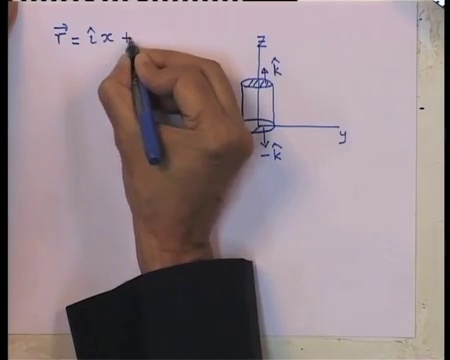 r⃗ = î x +
z
k̂
y
-k̂